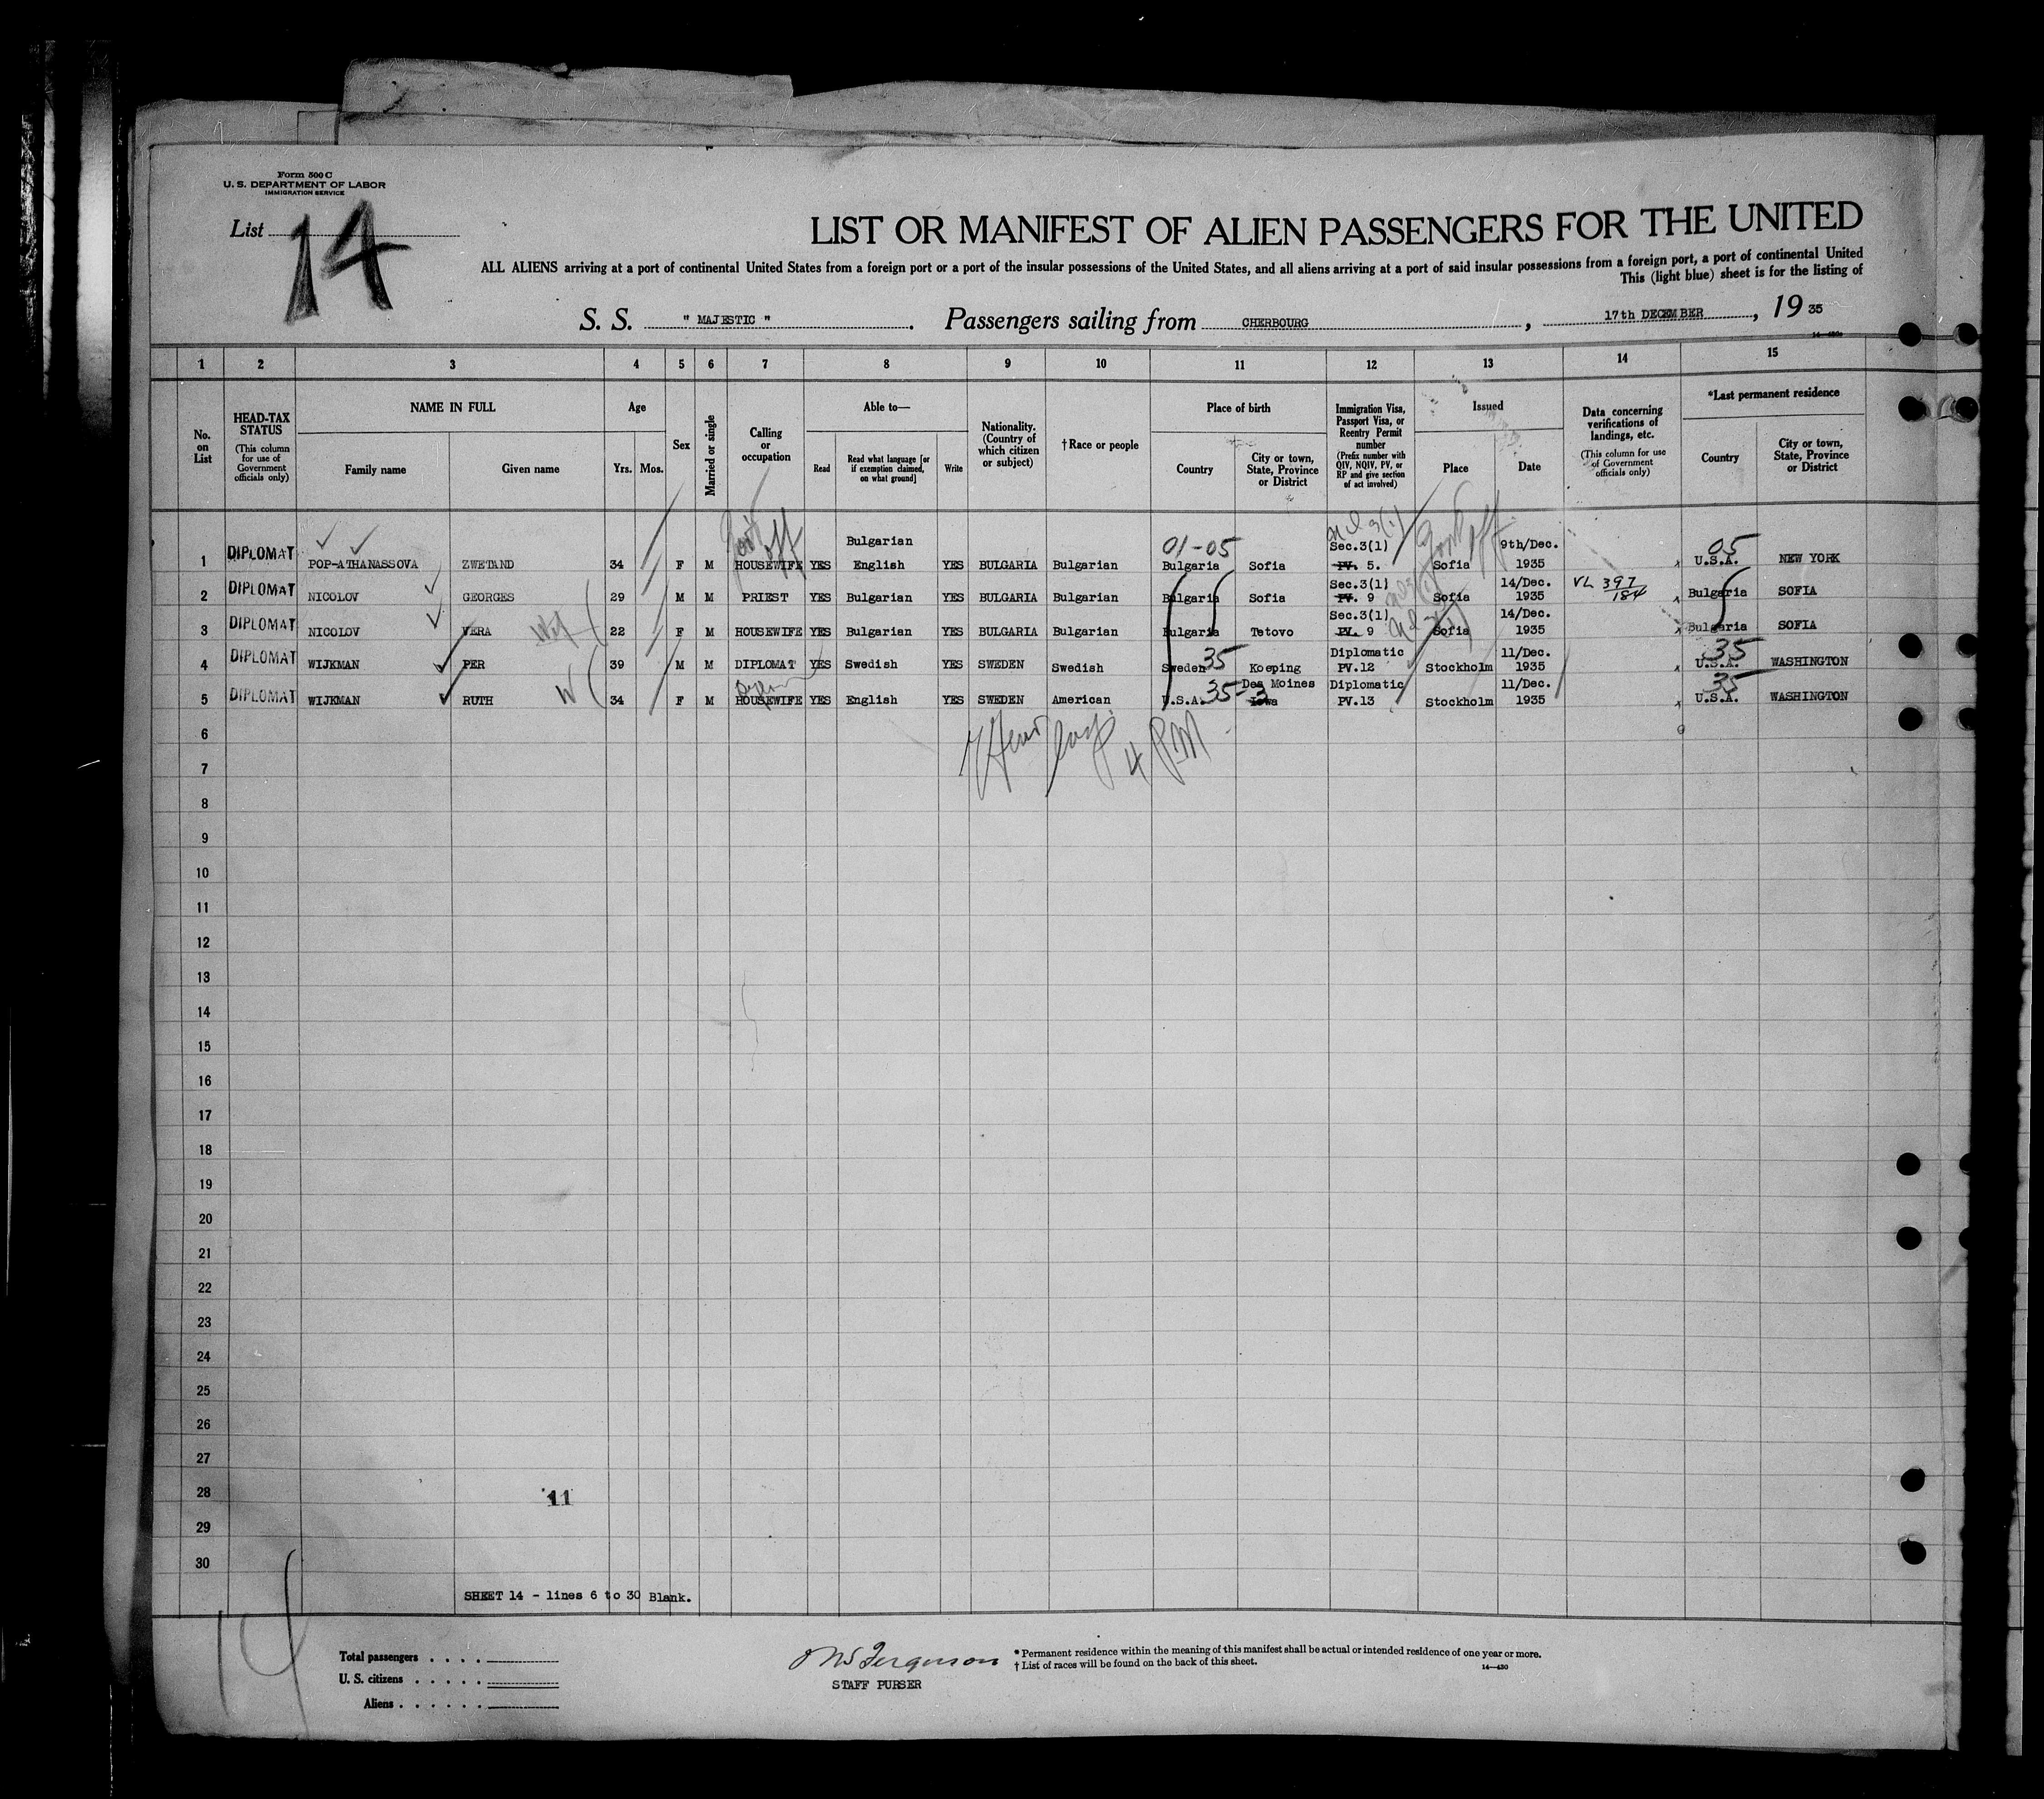 Form 500 C
U. S. DEPARTMENT OF LABOR
IMMIGRATION SERVICE
List 14
LIST OR MANIFEST OF ALIEN PASSENGERS FOR THE UNITED
ALL ALIENS arriving at a port of continental United States from a foreign port or a port of the insular possessions of the United States, and all aliens arriving at a port of said insular possessions from a foreign port, a port of continental United
This (light blue) sheet is for the listing of
S. S. " MAJESTIC " . Passengers sailing from CHERBOURG , 17th DECEMBER , 19 35
1 2 3 4 5 6 7 8 9 10 11 12 13 14 15
No. on List
HEAD-TAX STATUS (This column for use of Government officials only)
NAME IN FULL
Family name Given name
Age
Yrs. Mos.
Sex
Married or single
Calling or occupation
Able to—
Read Read what language [or if exemption claimed, on what ground] Write
Nationality. (Country of which citizen or subject)
†Race or people
Place of birth
Country City or town, State, Province or District
Immigration Visa, Passport Visa, or Reentry Permit number (Prefix number with QIV, NQIV, PV, or RP and give section of act involved)
Issued
Place Date
Data concerning verifications of landings, etc. (This column for use of Government officials only)
*Last permanent residence
Country City or town, State, Province or District
Bulgarian 01-05 Sec.3(1) 9th/Dec. 05
1 DIPLOMAT POP-ATHANASSOVA ZWETAND 34 F M HOUSEWIFE YES English YES BULGARIA Bulgarian Bulgaria Sofia PV. 5. Sofia 1935 U.S.A. NEW YORK
Sec.3(1) 14/Dec. VL 397/184
2 DIPLOMAT NICOLOV GEORGES 29 M M PRIEST YES Bulgarian YES BULGARIA Bulgarian Bulgaria Sofia PV. 9 Sofia 1935 Bulgaria SOFIA
Sec.3(1) 14/Dec.
3 DIPLOMAT NICOLOV VERA 22 F M HOUSEWIFE YES Bulgarian YES BULGARIA Bulgarian Bulgaria Tetovo PV. 9 Sofia 1935 Bulgaria SOFIA
35 Diplomatic 11/Dec. 35
4 DIPLOMAT WIJKMAN PER 39 M M DIPLOMAT YES Swedish YES SWEDEN Swedish Sweden Koeping PV.12 Stockholm 1935 U.S.A. WASHINGTON
35-3 Des Moines Diplomatic 11/Dec. 35
5 DIPLOMAT WIJKMAN RUTH W 34 F M HOUSEWIFE YES English YES SWEDEN American U.S.A. Iowa PV.13 Stockholm 1935 U.S.A. WASHINGTON
6
4 PM
7
8
9
10
11
12
13
14
15
16
17
18
19
20
21
22
23
24
25
26
27
28
11
29
30
SHEET 14 - lines 6 to 30 Blank.
Total passengers
U. S. citizens
Aliens
Ferguson
STAFF PURSER
* Permanent residence within the meaning of this manifest shall be actual or intended residence of one year or more.
† List of races will be found on the back of this sheet.
14—430